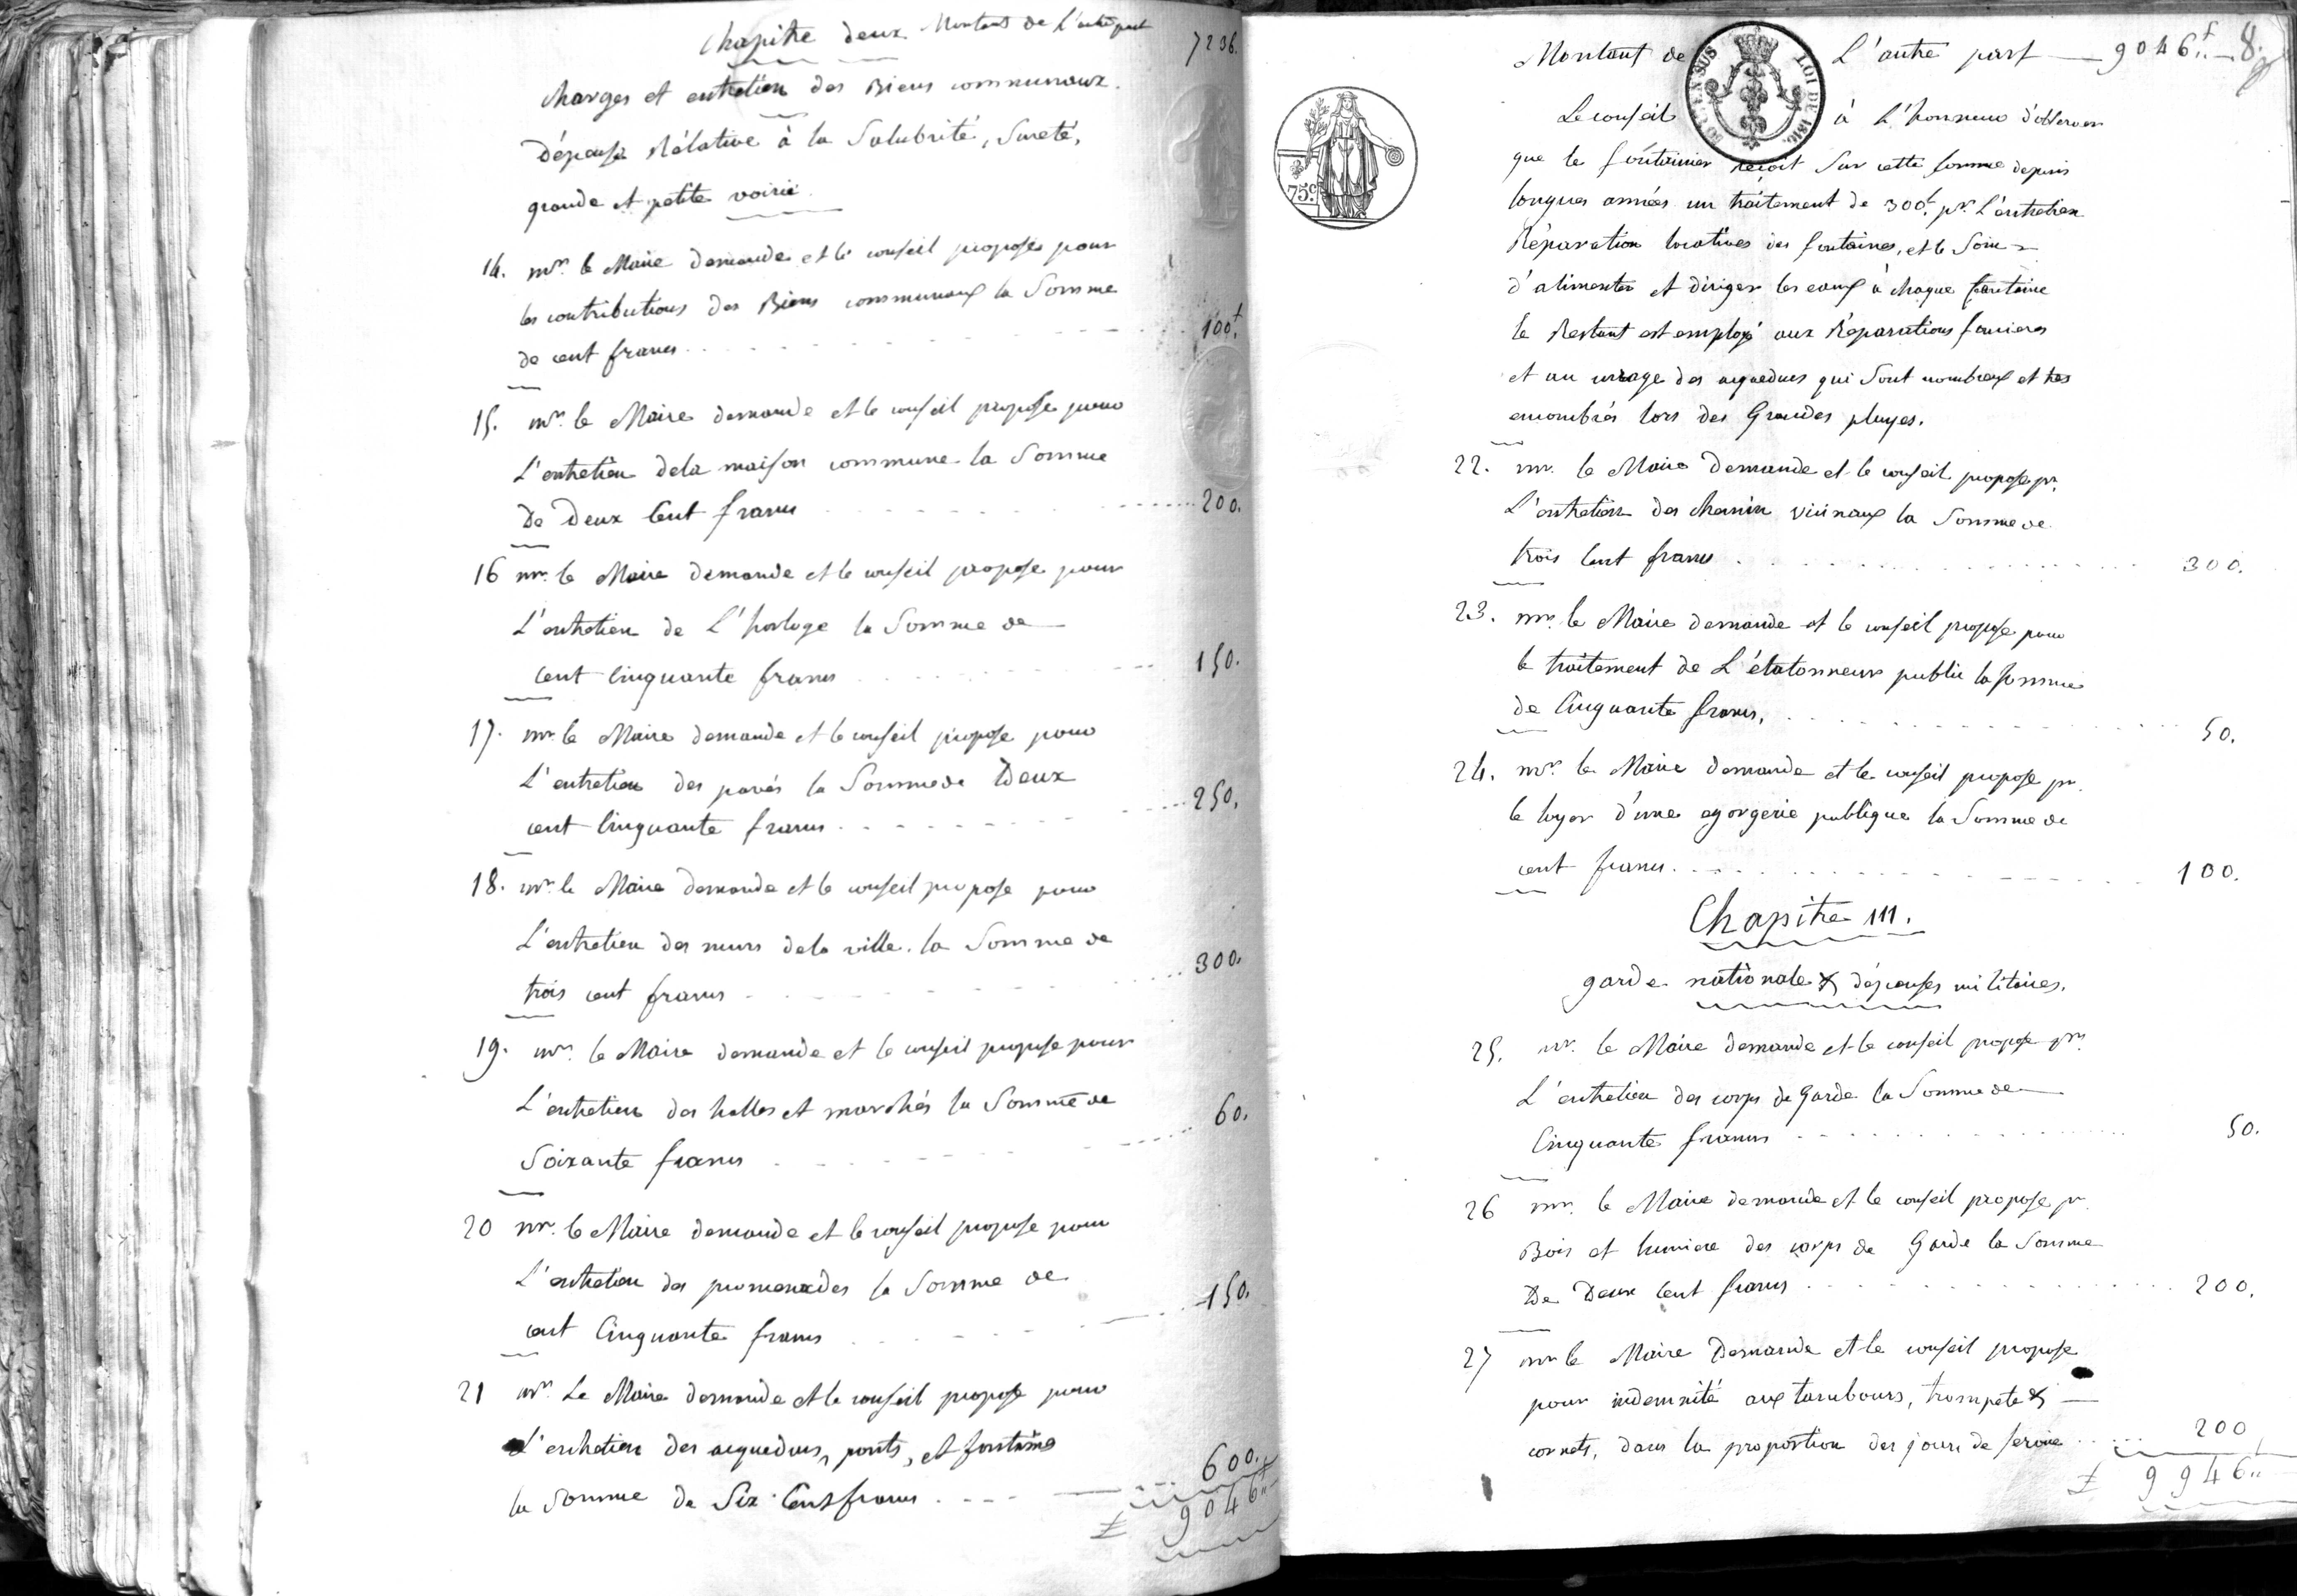 Chapitre deux Montant de L'autre part 7236.
charges et entretien des Biens communaux.
Dépense Rélative à la Salubrité, Sureté,
grande et petite voirie.
14. mr. le Maire demande et le conseil propose pour
les contributions des Biens communaux la Somme
de cent francs 100f.
15. mr. le Maire demande et le conseil propose pour
L'entretien dela maison commune la Somme
De Deux Cent francs 200.
16 mr. le Maire demande et le conseil propose pour
L'entretien de L'horloge la Somme de
cent Cinquante francs 150.
17. mr. le Maire demande et le conseil propose pour
L'entretien des pavés la Somme de Deux
cent Cinquante francs 250.
18. mr. le Maire demande et le conseil propose pour
L'entretien des murs dela ville. la Somme de
trois cent francs 300.
19. mr. le Maire demande et le conseil propose pour
L'entretien des halles et marchés la Somme de
Soixante francs 60.
20 mr. le Maire demande et le conseil propose pour
L'entretien des promenades la Somme de
cent Cinquante francs 150.
21 mr. Le Maire demande et le conseil propose pour
L'entretien des aqueducs, ponts, et fontaines
la Somme de Six Cent francs 600.
9046
Montant de L'autre part 9046f.. 8.
50 C. EN SUS LOI DE 1816.
75c.
Le conseil à L'honneur d'observer
que le fontainier reçoit Sur cette Somme depuis
longues années un traitement de 300f. pr. L'entretien
Réparation locatives des fontaines, et le Soin
d'alimenter et diriger les eaux à chaque fontaine
le Restant est employé aux Réparations foncieres
et au curage des aqueducs qui Sont nombreux et tres
encombrés lors des Grandes pluyes.
22. mr. le Maire Demande et le conseil propose pr.
L'entretien des chemin vicinaux la Somme de
trois Cent francs 300.
23. mr. le Maire demande et le conseil propose pour
le traitement de L'étatonneur public la Somme
de Cinquante francs. 50.
24. mr. le Maire demande et le conseil propose pr.
le loyer d'une egorgerie publique la Somme de
cent francs. 100.
Chapitre III.
garde nationale & dépenses militaires.
25. mr. le Maire demande et le conseil propose pr.
L'entretien des corps de Garde la Somme de
Cinquante francs 50.
26 mr. le Maire demande et le conseil propose pr.
Bois et lumiere des corps de Garde la Somme
De Deux Cent francs 200.
27 mr. le Maire Demande et le conseil propose
pour indemnité aux tambours, trompete &
cornets, dans la proportion des jours de Service 200
9946..